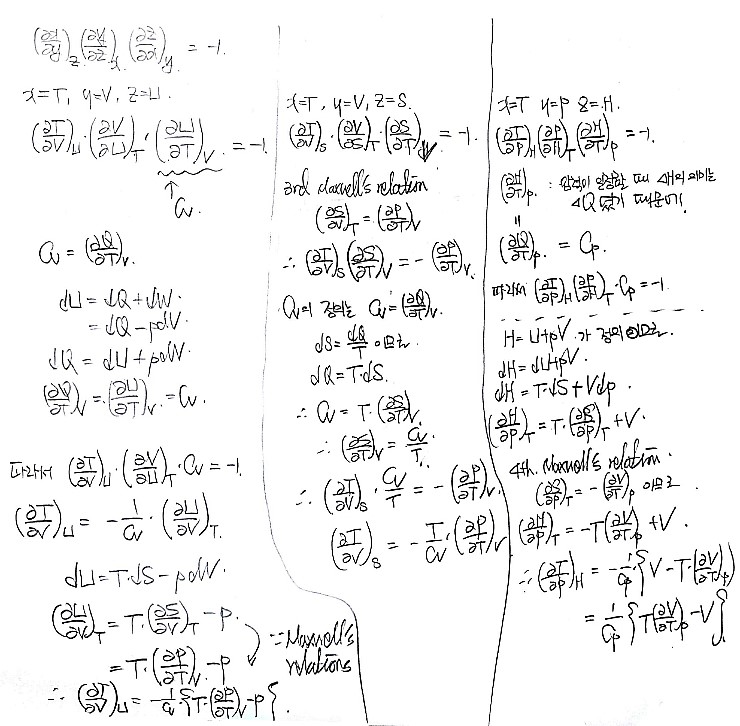 (∂x/∂y)_z (∂y/∂z)_x (∂z/∂x)_y = -1.
x=T, y=V, z=U.
(∂T/∂V)_U · (∂V/∂U)_T · (∂U/∂T)_V = -1.
↑
Cv.
Cv = (∂Q/∂T)_V.
dU = dQ + dW.
= dQ - pdV.
dQ = dU + pdV.
(∂Q/∂T)_V = (∂U/∂T)_V = Cv.
따라서 (∂T/∂V)_U · (∂V/∂U)_T · Cv = -1.
(∂T/∂V)_U = -1/Cv · (∂U/∂V)_T.
dU = T·dS - pdV.
(∂U/∂V)_T = T·(∂S/∂V)_T - p.
= T·(∂P/∂T)_V - p
∵ Maxwell's
relations
∴ (∂T/∂V)_U = -1/Cv {T·(∂P/∂T)_V - p}.
x=T, y=V, z=S.
(∂T/∂V)_S · (∂V/∂S)_T (∂S/∂T)_V = -1.
3rd Maxwell's relation
(∂S/∂V)_T = (∂P/∂T)_V
∴ (∂T/∂V)_S (∂S/∂T)_V = -(∂P/∂T)_V.
Cv의 정의는 Cv = (∂Q/∂T)_V.
dS = dQ/T 이므로
dQ = T·dS.
∴ Cv = T·(∂S/∂T)_V
∴ (∂S/∂T)_V = Cv/T.
∴ (∂T/∂V)_S · Cv/T = -(∂P/∂T)_V.
(∂T/∂V)_S = -T/Cv · (∂P/∂T)_V
x=T y=P z=H.
(∂T/∂P)_H (∂P/∂H)_T (∂H/∂T)_P = -1.
(∂H/∂T)_P. : 압력이 일정할 때 ΔH의 의미는
ΔQ 였기 때문에.
"
(∂Q/∂T)_P = Cp.
따라서 (∂T/∂P)_H (∂P/∂H)_T · Cp = -1.
H = U+pV 가 정의 이므로.
dH = dU+pV.
dH = T·dS + Vdp.
(∂H/∂P)_T = T·(∂S/∂P)_T + V.
4th. Maxwell's relation.
(∂S/∂P)_T = -(∂V/∂T)_P 이므로
(∂H/∂P)_T = -T(∂V/∂T)_P + V.
∴ (∂T/∂P)_H = -1/Cp {V - T·(∂V/∂T)_P}
= 1/Cp {T(∂V/∂T)_P - V}.